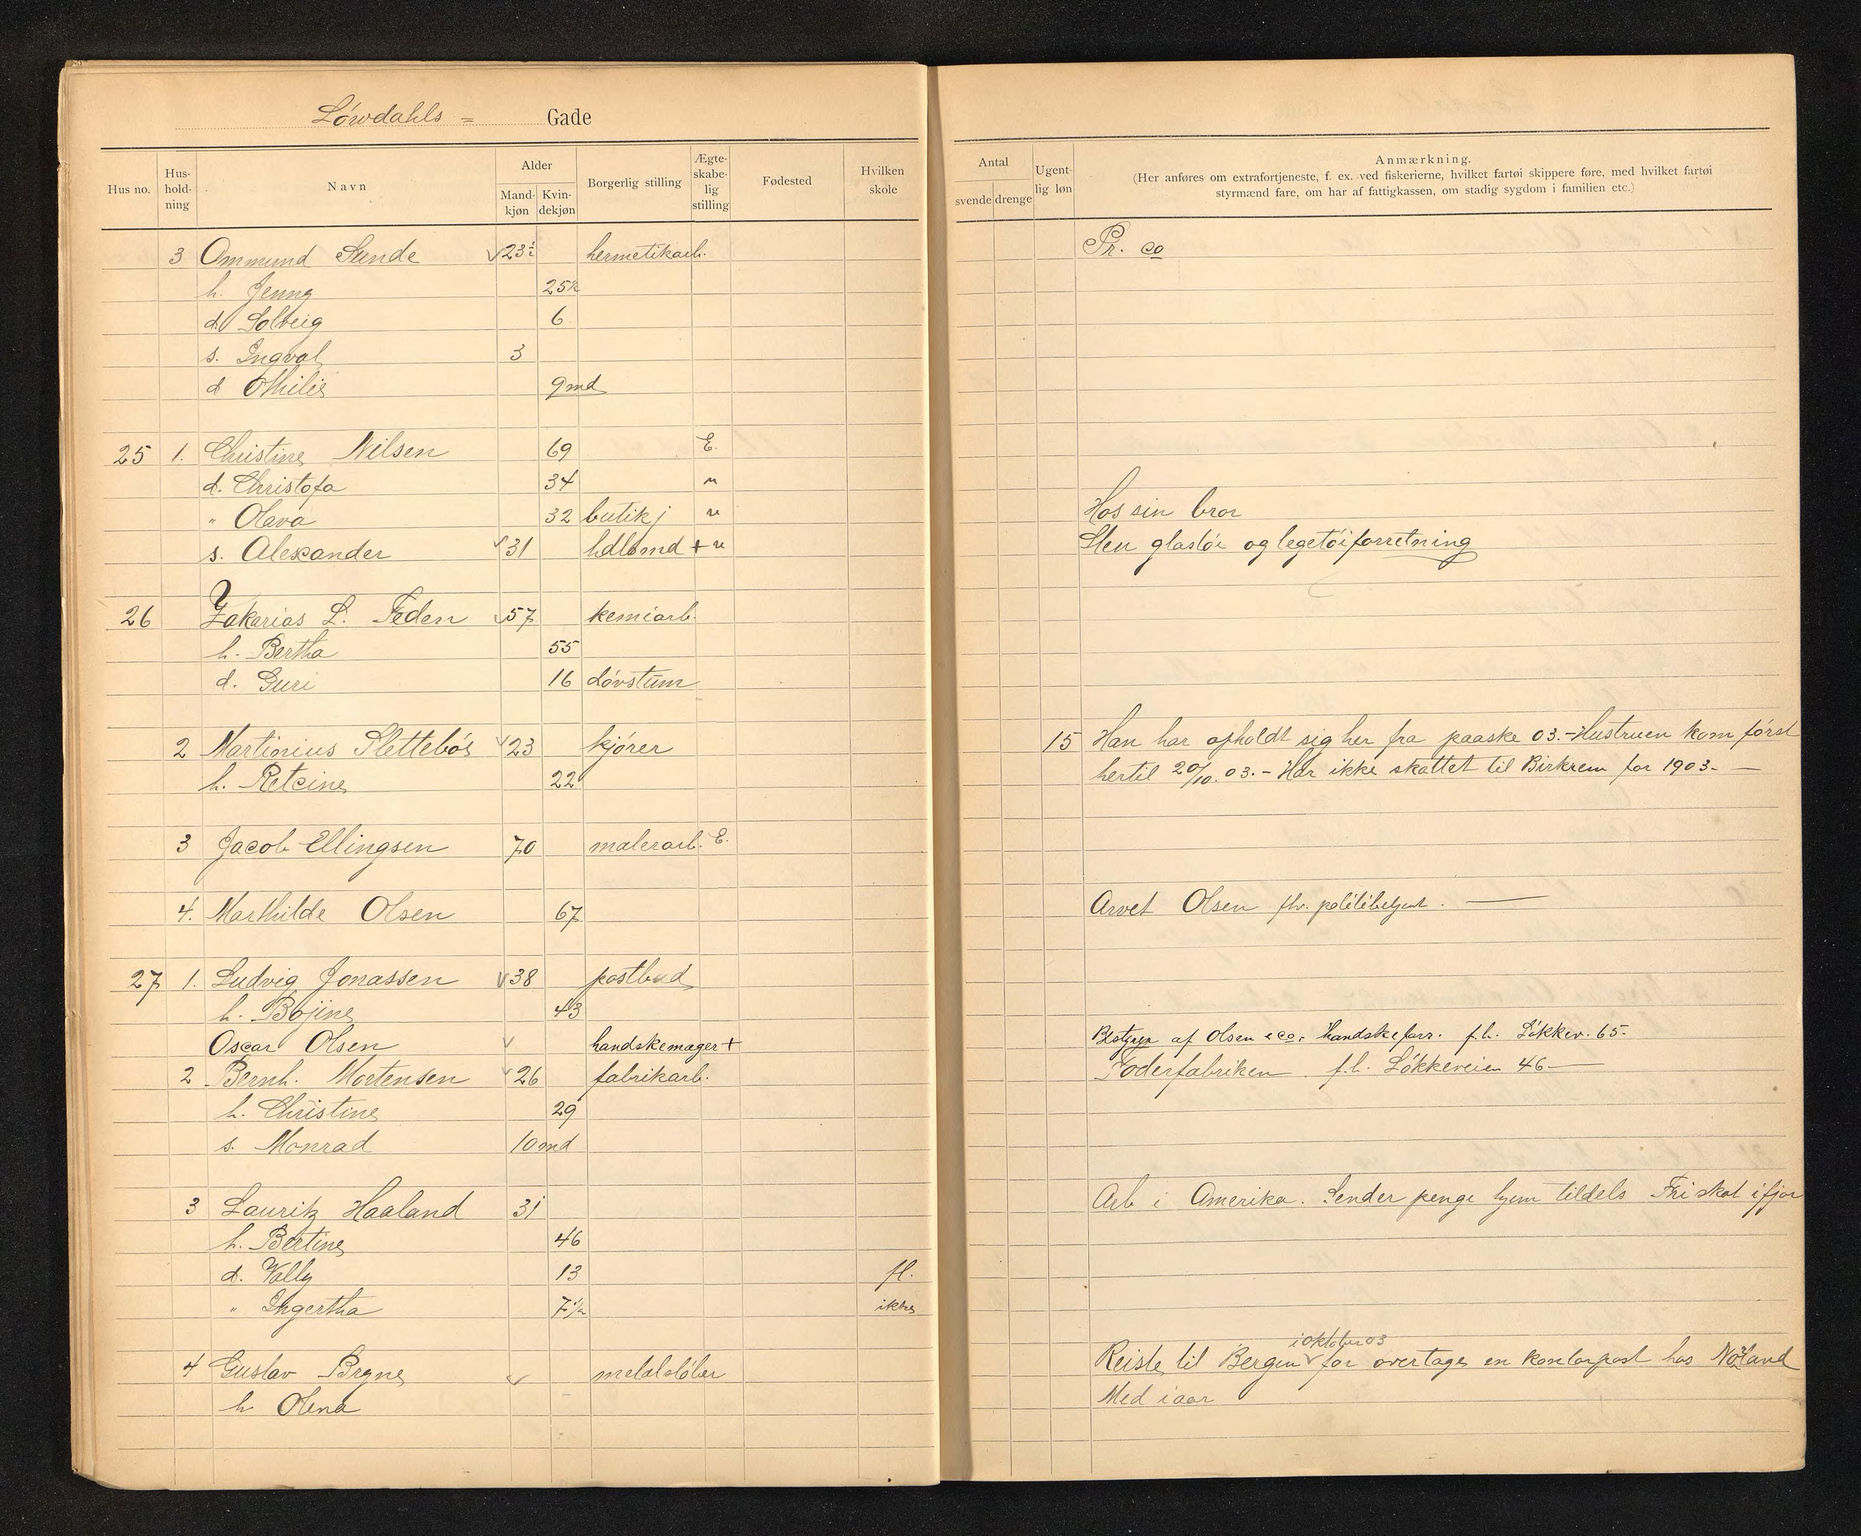 Løwdahls = Gade
Hus no. Hus-hold-ning Navn Alder Mand-kjøn Kvin-dekjøn Borgerlig stilling Ægte-skabe-lig stilling Fødested Hvilken skole
Antal svende drenge Ugent-lig løn Anmærkning.
(Her anføres om extrafortjeneste, f. ex. ved fiskerierne, hvilket fartøi skippere føre, med hvilket fartøi
styrmænd fare, om har af fattigkassen, om stadig sygdom i familien etc.)
3 Ommund Sunde 23½ hermetikarb. Pr. co
h. Jenny 25½
d. Solveig 6
s. Ingval 3
d Othilie 9md
25 1. Christine Nilsen 69 E.
d. Christofa 34 u
" Olava 32 butikj u Hos sin bror
s. Alexander 31 hdlsmd + u Sten glastøi og legetøiforretning
26 Zakarias L. Feden 57 kemiarb.
h. Bertha 55
d. Guri 16 døvstum
2 Martinius Slettebøe 23 kjører 15 Han har opholdt sig her fra paaske 03.- Hustruen kom først
h. Retzine 22 hertil 20/10.03. - Har ikke skattet til Birkrem for 1903. -
3 Jacob Ellingsen 70 malerarb. E.
4. Marthilde Olsen 67 Arvet Olsen fhv. politibetjent. —
27 1. Ludvig Jonassen 38 postbud
h. Bojine 43
Oscar Olsen handskemager + Bestyrer af Olsen & co. Handskeforr. f.h. Løkkev. 65.
2 Bernh. Mortensen 26 fabrikarb. Foderfabriken f.h. Løkkeveien 46 —
h. Christine 29
s. Monrad 10md
3 Lauritz Haaland 31 Arb i Amerika. Sender penge hjem tildels Fri skat ifjor
h. Bertine 46
d. Vally 13 fl.
" Ingertha 7½ ikke
4 Gustav Bryne metalstøber Reiste til Bergen i oktober 03 for overtage en kontorpost hos Nøland
h Olena Med iaar